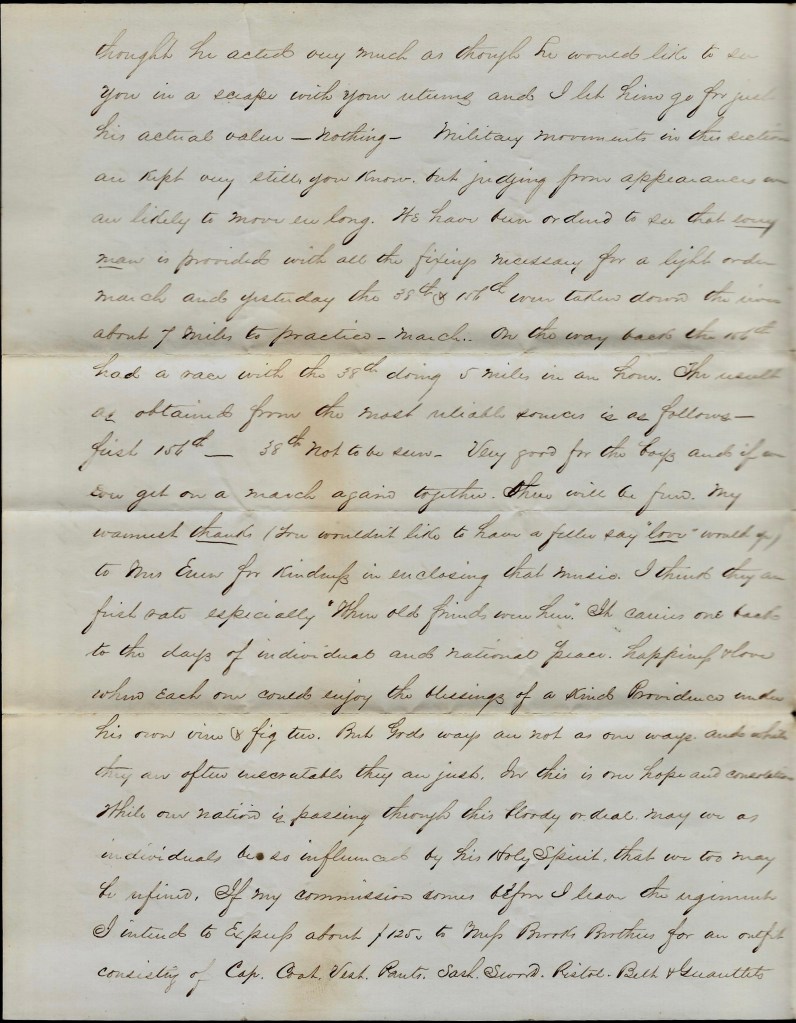 thought he acted very much as though he would like to see
you in a scrape with your returns and I let him go for just
his actual value — nothing — Military movements in this section
are kept very still, you know. but judging from appearances we
are likely to move ere long. We have been ordered to see that every
man is provided with all the fixings necessary for a light order
march and yesterday the 38th & 156th were taken down the river
about 7 miles to practice - march. On the way back the 156th
had a race with the 38th doing 5 miles in an hour. The result
as obtained from the most reliable sources is as follows —
first 156th — 38th not to be seen - Very good for the boys and if we
Ever get on a march again together. there will be fun. My
warmest thanks (You wouldn't like to have a feller say "love" would you)
to Mrs for kindness in enclosing that music. I think they are
first rate especially "When old friends were here". It carries one back
to the days of individual and national "peace". happiness & love
when Each one could enjoy the blessings of a kind Providence under
his own vine & fig tree. But Gods ways are not as our ways. and while
they are often inscrutable they are just. In this is our hope and consolation
While our nation is passing through this bloody ordeal. may we as
individuals be so influenced by his Holy Spirit, that we too may
be refined. If my commission comes before I leave the regiment
I intend to Express about $125. to Mess Brooks Brothers for an outfit
consisting of Cap. Coat. Vest. Pants. Sash. Sword. Pistol. Belt & Guantlets